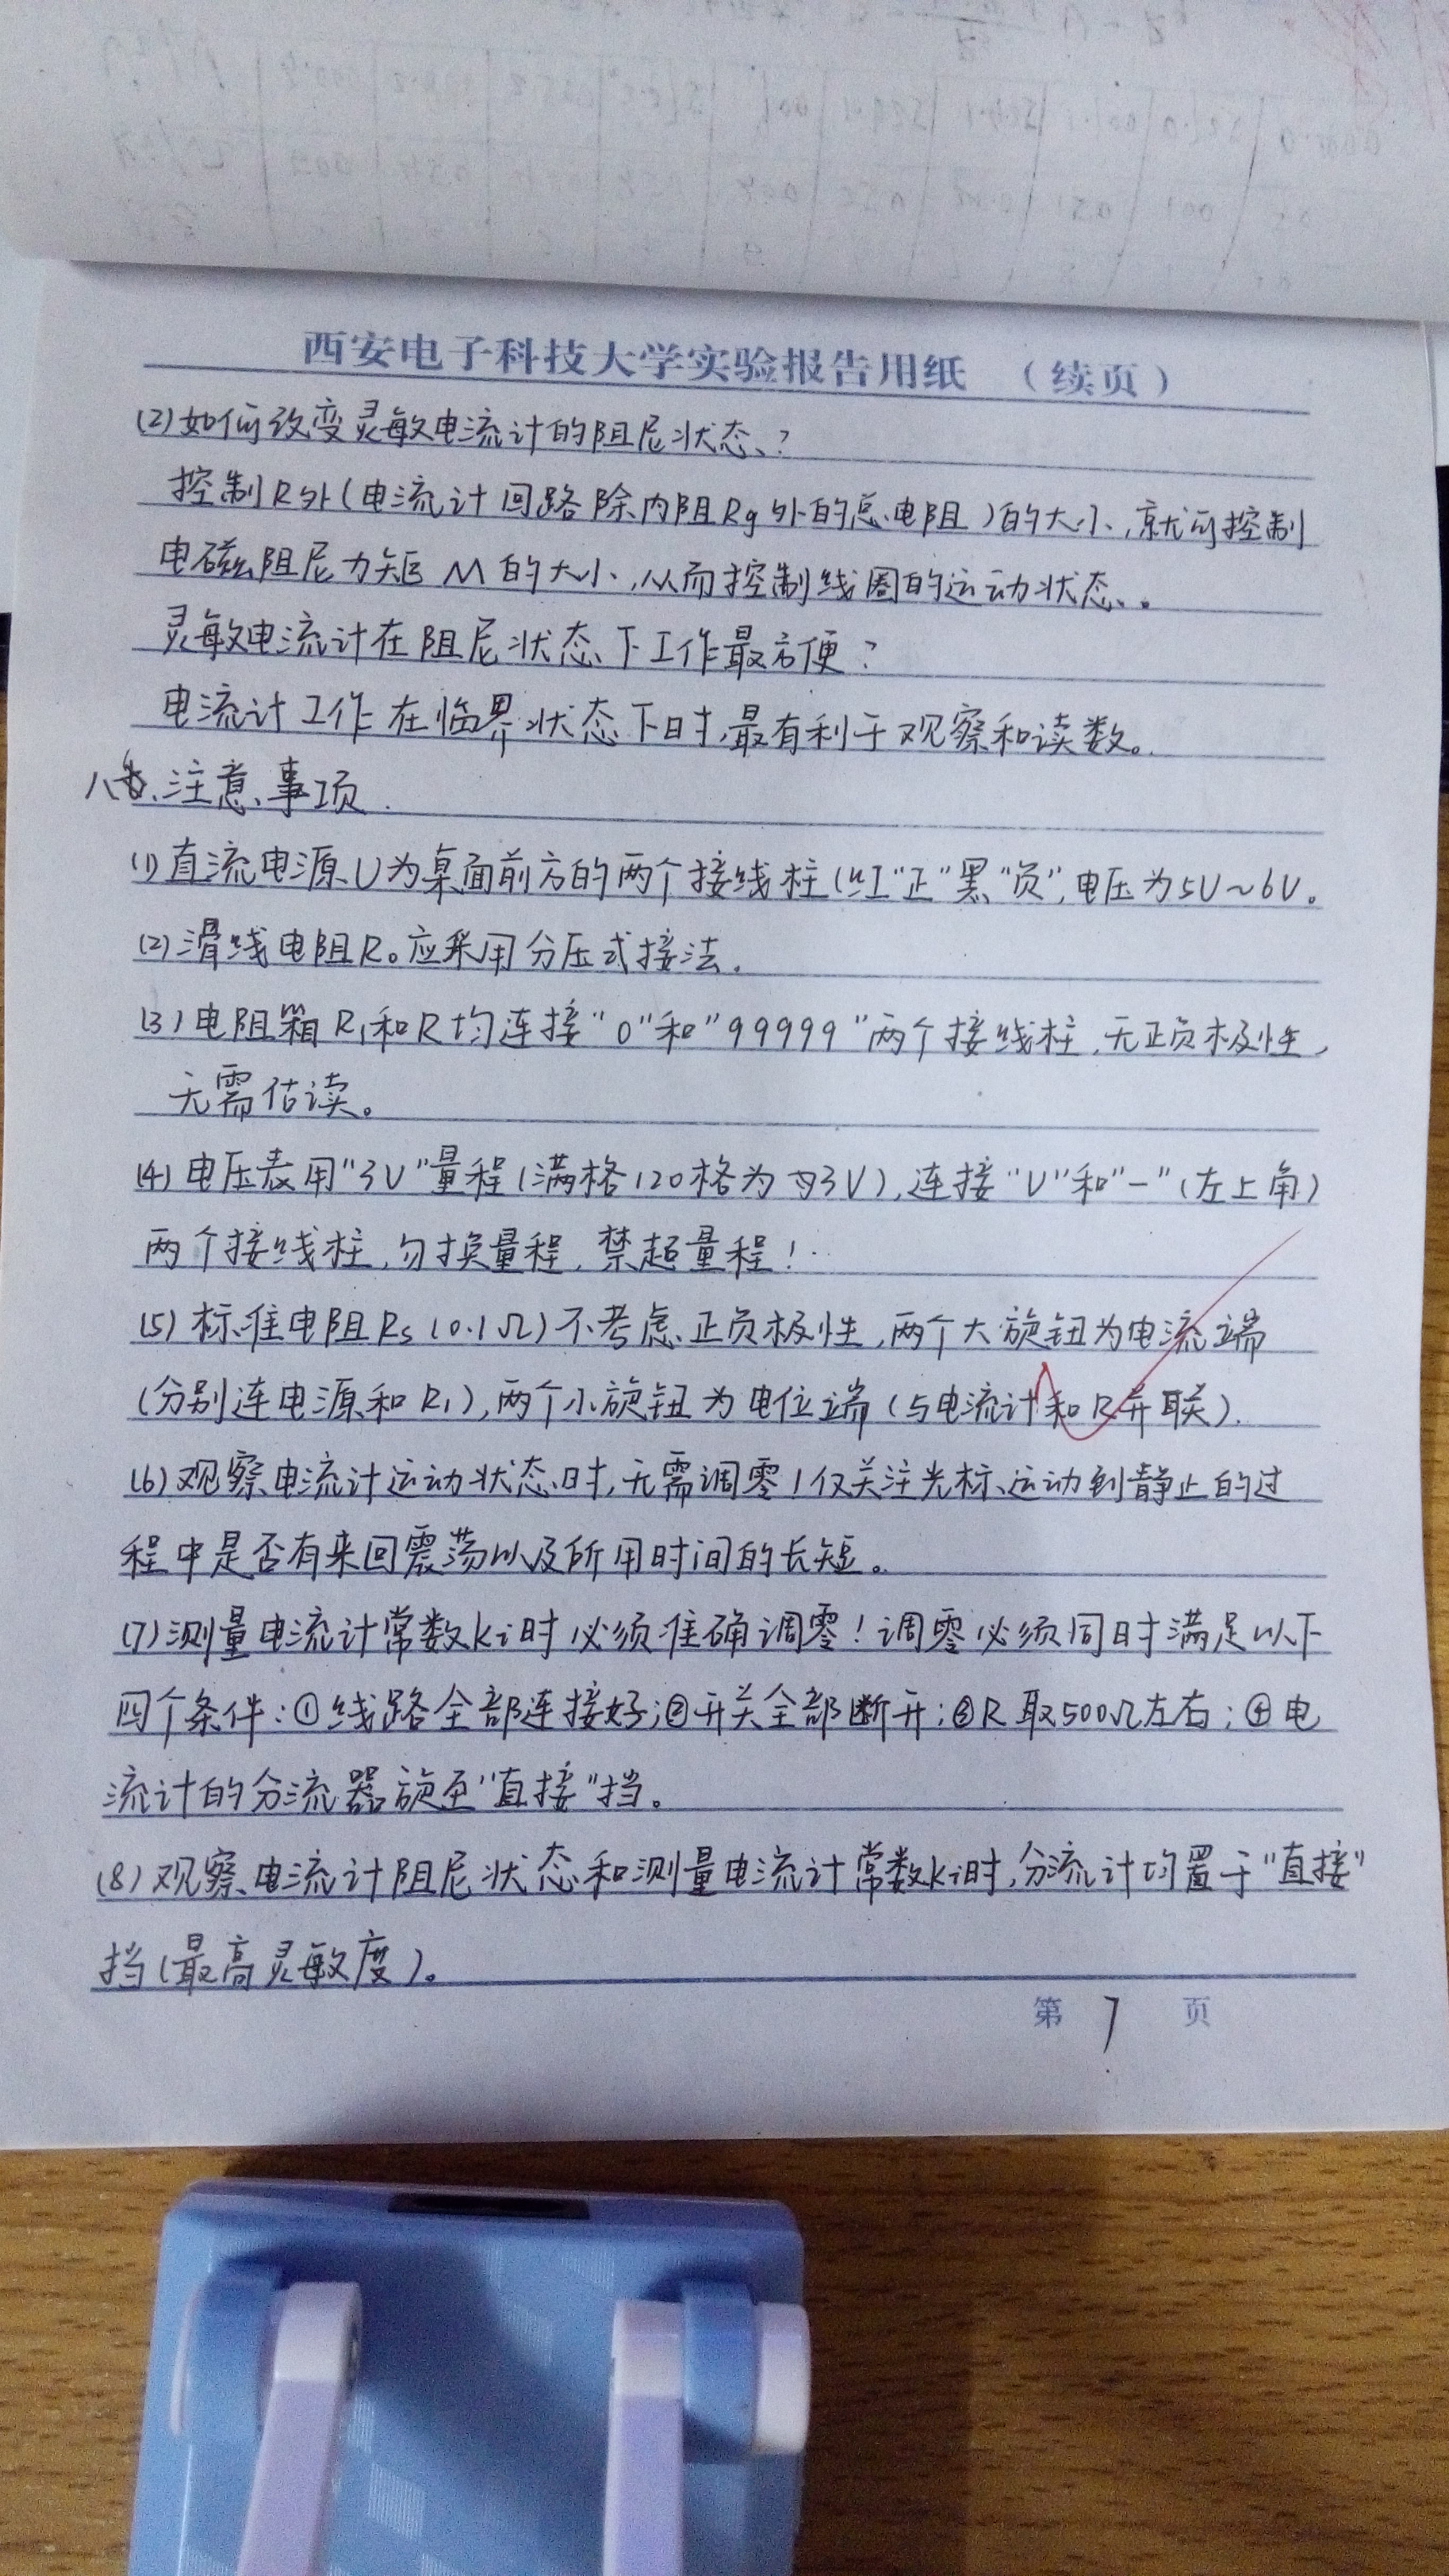 西安电子科技大学实验报告用纸 （续页）
(2)如何改变灵敏电流计的阻尼状态?
控制R外(电流计回路除内阻Rg外的总电阻)的大小,就可控制
电磁阻尼力矩M的大小,从而控制线圈的运动状态。
灵敏电流计在阻尼状态下工作最方便?
电流计工作在临界状态下时,最有利于观察和读数。
八、注意事项.
(1)直流电源U为桌面前方的两个接线柱(红"正"黑"负",电压为5V~6V。
(2)滑线电阻R。应采用分压式接法.
(3)电阻箱R1和R均连接"0"和"99999"两个接线柱,无正负极性,
无需估读。
(4)电压表用"3V"量程(满格120格为3V),连接"V"和"-"(左上角)
两个接线柱,勿换量程,禁超量程!
(5)标准电阻Rs(0.1Ω)不考虑正负极性,两个大旋钮为电流端
(分别连电源和R1),两个小旋钮为电位端(与电流计和R并联).
(6)观察电流计运动状态时,无需调零!仅关注光标运动到静止的过
程中是否有来回震荡以及所用时间的长短。
(7)测量电流计常数ki时必须准确调零!调零必须同时满足以下
四个条件:①线路全部连接好;②开关全部断开;③R取500Ω左右;④电
流计的分流器旋至"直接"挡。
(8)观察电流计阻尼状态和测量电流计常数ki时,分流计均置于"直接"
挡(最高灵敏度)。
第 7 页